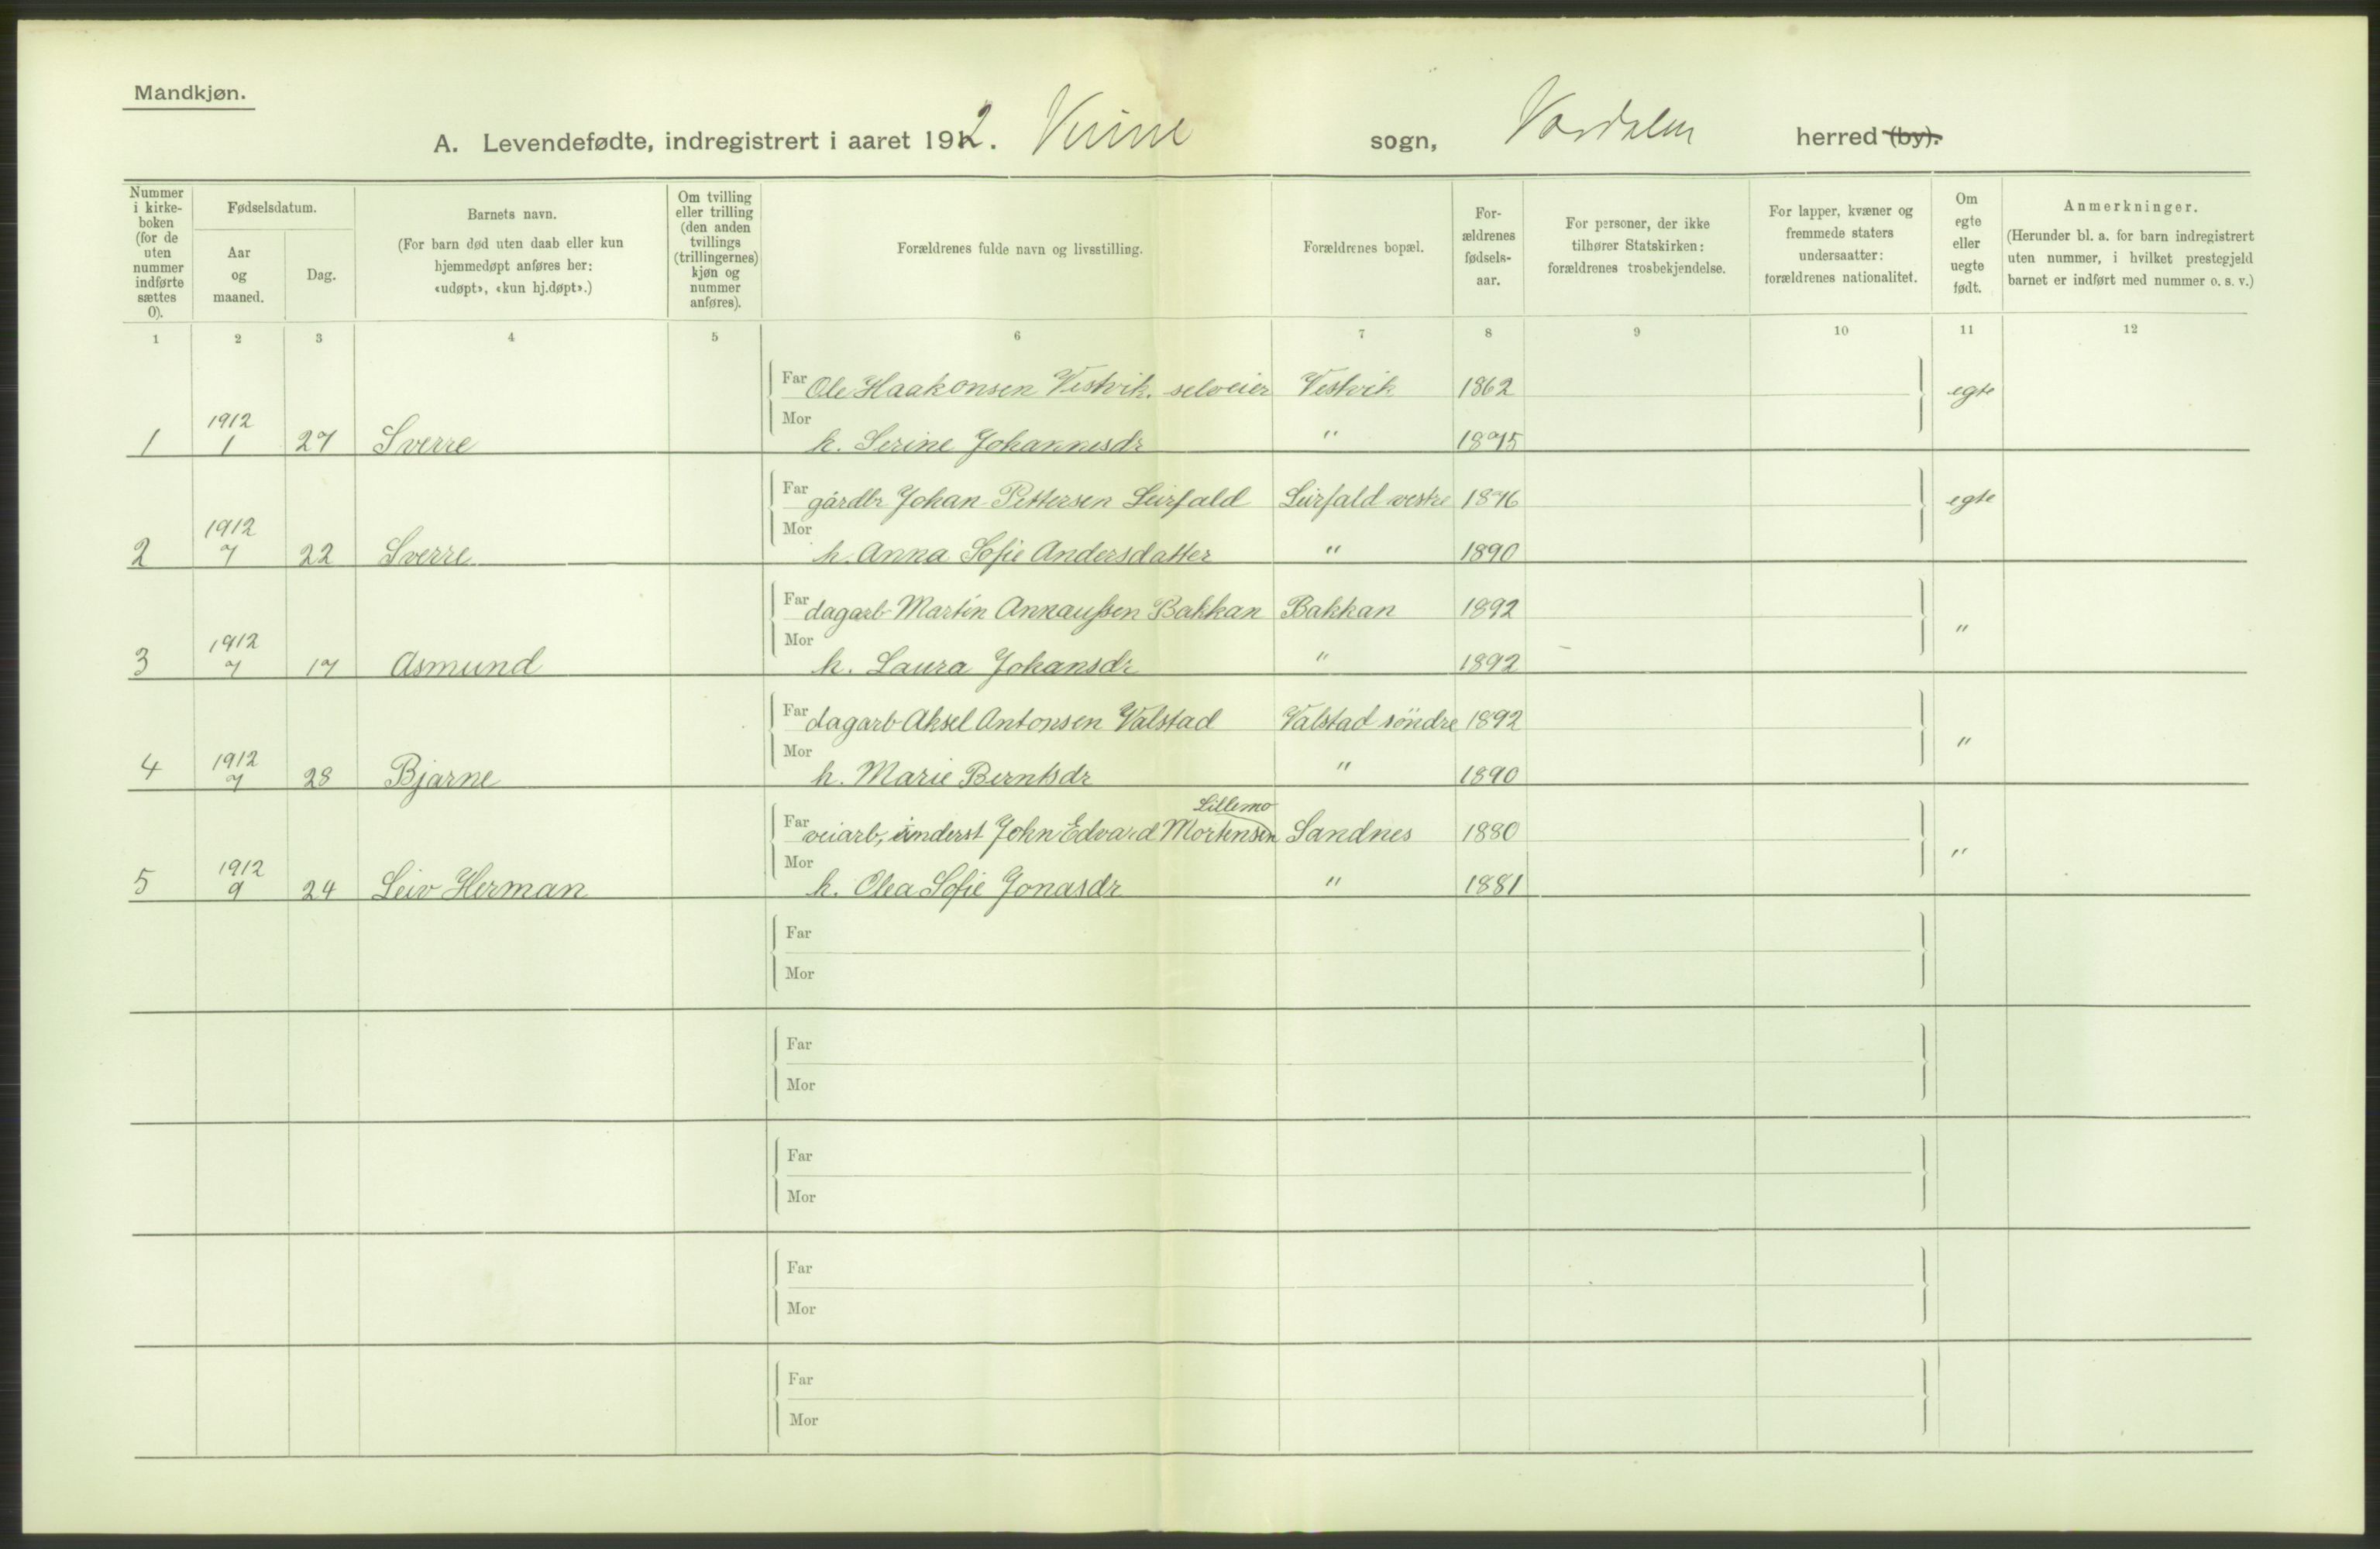 Mandkjøn.
A. Levendefødte, indregistrert i aaret 1912. Vinne sogn, Værdalen herred (by).
Nummer i kirke-boken (for de uten nummer indførte sættes 0).
Fødselsdatum.
Aar og maaned.
Dag.
Barnets navn.
(For barn død uten daab eller kun hjemmedøpt anføres her: «udøpt», «kun hj.døpt».)
Om tvilling eller trilling (den anden tvillings (trillingernes) kjøn og nummer anføres).
Forældrenes fulde navn og livsstilling.
Forældrenes bopæl.
For-ældrenes fødsels-aar.
For personer, der ikke tilhører Statskirken: forældrenes trosbekjendelse.
For lapper, kvæner og fremmede staters undersaatter: forældrenes nationalitet.
Om egte eller uegte født.
Anmerkninger.
(Herunder bl. a. for barn indregistrert uten nummer, i hvilket prestegjeld barnet er indført med nummer o. s. v.)
1 2 3 4 5 6 7 8 9 10 11 12
Far Ole Haakonsen Vestvik. selveier Vestvik 1862 egte
1 1912 1 27 Sverre Mor h. Serine Johannesdr " 1875
Far gårdbr Johan Pettersen Leirfald Leirfald vestre 1876 egte
2 1912 7 22 Sverre Mor h. Anna Sofie Andersdatter " 1890
Far dagarb Martin Annaussen Bakkan Bakkan 1892 "
3 1912 7 17 Asmund Mor h. Laura Johansdr " 1892
Far dagarb Aksel Antonsen Valstad Valstad söndre 1892 "
4 1912 7 28 Bjarne Mor h. Marie Berntsdr " 1890
Lillemo
Far veiarb, inderst John Edvard Mortensen Sandnes 1880 "
5 1912 9 24 Leiv Herman Mor h. Olea Sofie Jonasdr " 1881
Far
Mor
Far
Mor
Far
Mor
Far
Mor
Far
Mor